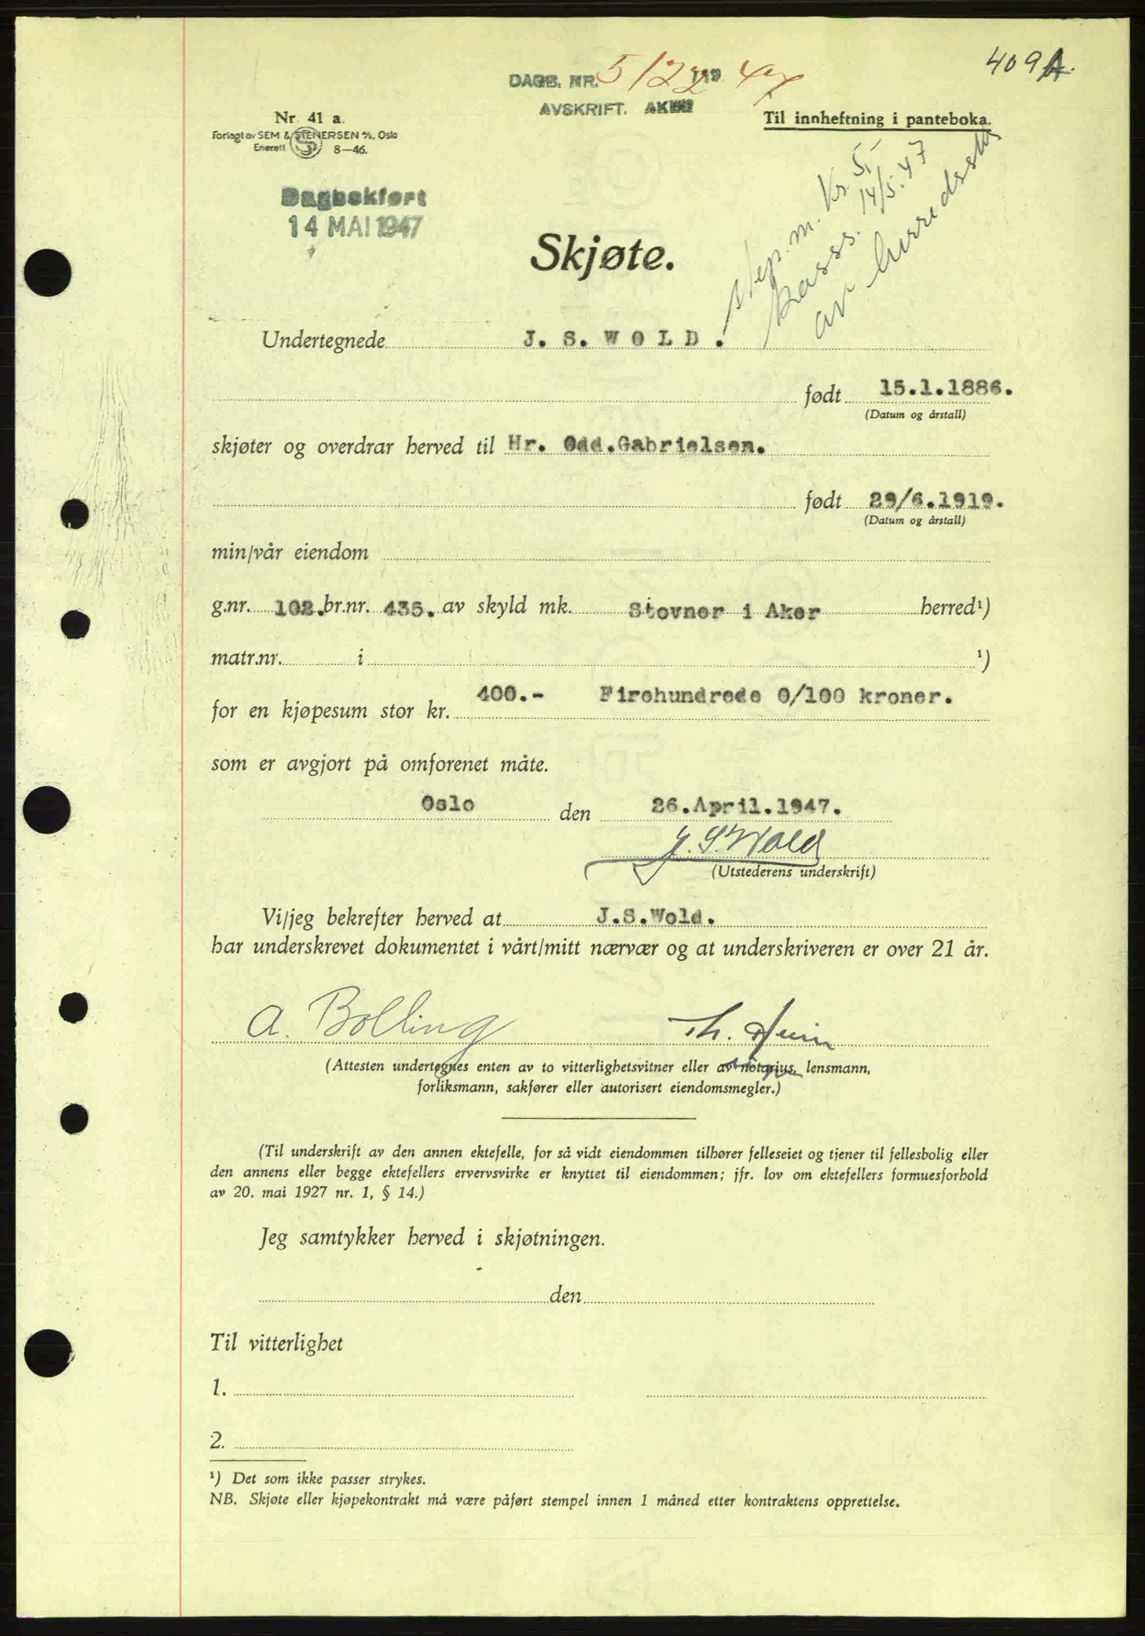 409 A.
DAGB. NR. 5122 19 47
AVSKRIFT. AKER
Nr. 41 a.
Til innheftning i panteboka.
Forlagt av SEM & STENERSEN A/S, Oslo
Enerett S 8—46.
Dagbokført
14 MAI 1947
Step. m. Kr. 5,-
kass. 14/5.47
av herredssk
Skjøte.
Undertegnede J. S. WOLD.
født 15.1.1886.
(Datum og årstall)
skjøter og overdrar herved til Hr. Odd.Gabrielsen.
født 29/6.1919.
(Datum og årstall)
min/vår eiendom
g.nr. 102. br.nr. 435. av skyld mk. Stovner i Aker herred¹)
matr.nr. i ¹)
for en kjøpesum stor kr. 400.- Firehundrede 0/100 kroner.
som er avgjort på omforenet måte.
Oslo den 26.April.1947.
J. S. Wold
(Utstederens underskrift)
Vi/jeg bekrefter herved at J.S.Wold.
har underskrevet dokumentet i vårt/mitt nærvær og at underskriveren er over 21 år.
A. Bolling Th. Heim
(Attesten undertegnes enten av to vitterlighetsvitner eller av notarius, lensmann,
forliksmann, sakfører eller autorisert eiendomsmegler.)
(Til underskrift av den annen ektefelle, for så vidt eiendommen tilhører felleseiet og tjener til fellesbolig eller
den annens eller begge ektefellers ervervsvirke er knyttet til eiendommen; jfr. lov om ektefellers formuesforhold
av 20. mai 1927 nr. 1, § 14.)
Jeg samtykker herved i skjøtningen.
den
Til vitterlighet
1.
2.
¹) Det som ikke passer strykes.
NB. Skjøte eller kjøpekontrakt må være påført stempel innen 1 måned etter kontraktens opprettelse.